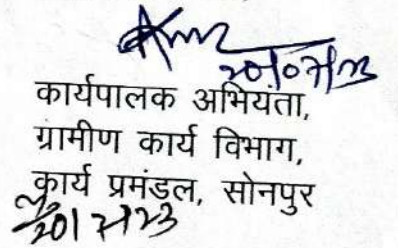 20/07/23
कार्यपालक अभियंता,
ग्रामीण कार्य विभाग,
कार्य प्रमंडल, सोनपुर
20/7/23